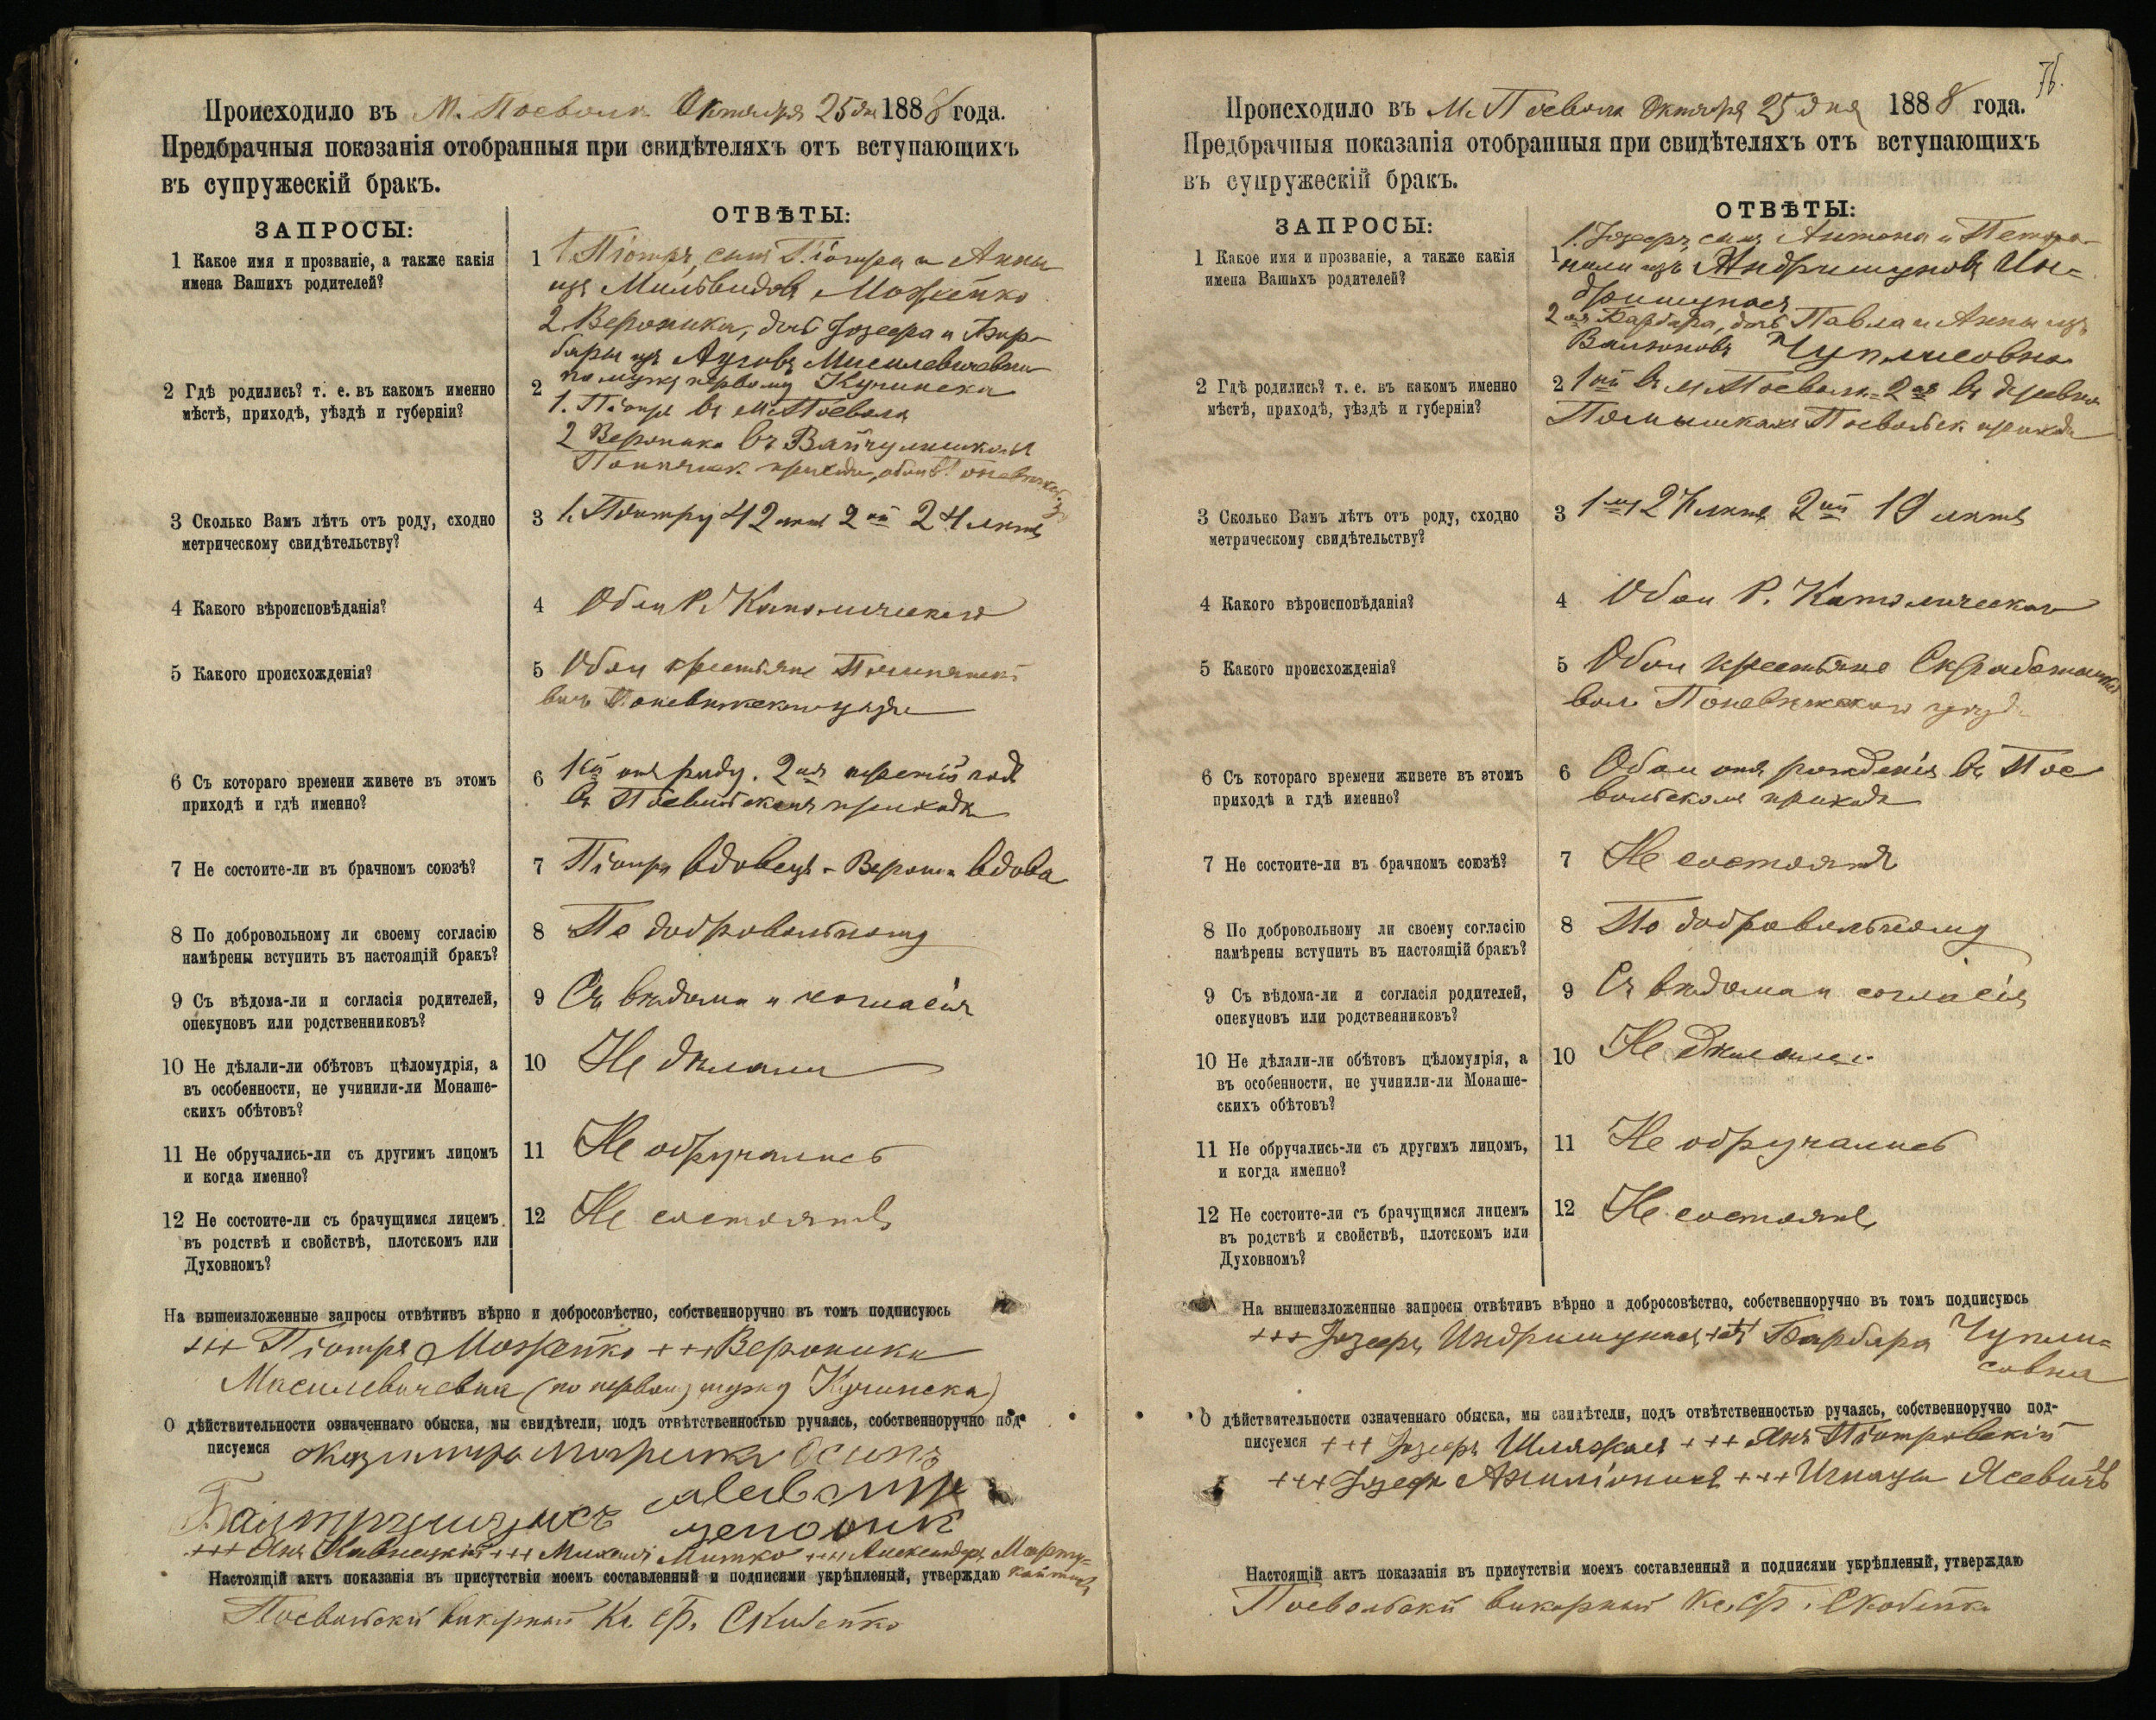 Происходило въ М. Посволи Октября 25 дня 1888 года.
Предбрачныя показанія отобранныя при свидѣтеляхъ отъ вступающихъ
въ супружескій бракъ.
ЗАПРОСЫ:
ОТВѢТЫ:
1 Какое имя и прозваніе, а также какія
имена Вашихъ родителей?
1 1. Піотръ, сынъ Піотра и Анны
изъ Мильвидовъ Можейко
2 Вероника, дочь Іозефа и Бар-
бары изъ
по мужу первому Кучинска
2 Гдѣ родились? т. е. въ какомъ именно
мѣстѣ, приходѣ, уѣздѣ и губерніи?
2 1. Піотръ въ м. Посволи
2 Вероника въ
прихода, обои
3 Сколько Вамъ лѣтъ отъ роду, сходно
метрическому свидѣтельству?
3 1. Піотру 42 лѣтъ 2ой 24 лѣтъ
4 Какого вѣроисповѣданія?
4 Обои Р. Католическаго
5 Какого происхожденія?
5 Обои крестьяне
вол. Поневѣжскаго уѣзда
6 Съ котораго времени живете въ этомъ
приходѣ и гдѣ именно?
6 1ый отъ роду. 2ая третій годъ
въ Посвольскомъ приходѣ
7 Не состоите-ли въ брачномъ союзѣ?
7 Піотръ вдовецъ - Вероника вдова
8 По добровольному ли своему согласію
намѣрены вступить въ настоящій бракъ?
8 По добровольному
9 Съ вѣдома-ли и согласія родителей,
опекуновъ или родственниковъ?
9 Съ вѣдома и согласія
10 Не дѣлали-ли обѣтовъ цѣломудрія, а
въ особенности, не учинили-ли Монаше-
скихъ обѣтовъ?
10 Не дѣлали
11 Не обручались-ли съ другимъ лицомъ
и когда именно?
11 Не обручались
12 Не состоите-ли съ брачущимся лицемъ
въ родствѣ и свойствѣ, плотскомъ или
Духовномъ?
12 Не состоятъ
На вышеизложенные запросы отвѣтивъ вѣрно и добросовѣстно, собственноручно въ томъ подписуюсь
+++ Піотръ Можейко +++ Вероника
(по первому мужу Кучинска)
О дѣйствительности означеннаго обыска, мы свидѣтели, подъ отвѣтственностью ручаясь, собственноручно под-
писуемся
+++ Янъ +++ Михаилъ Митко +++ Александръ
Настоящій актъ показанія въ присутствіи моемъ составленный и подписями укрѣпленый, утверждаю
Посвольскій викарный Кс. Ф. Скабейко
76.
Происходило въ М. Посволи Октября 25 дня 1888 года.
Предбрачныя показанія отобранныя при свидѣтеляхъ отъ вступающихъ
въ супружескій бракъ.
ЗАПРОСЫ:
ОТВѢТЫ:
1 Какое имя и прозваніе, а также какія
имена Вашихъ родителей?
1 1. Іозефъ, сынъ Антона и Петро-
нели изъ Ин-
дришунасъ
2ая Барбара, дочь Павла и Анны изъ
Валюновъ Чуплисовна
2 Гдѣ родились? т. е. въ какомъ именно
мѣстѣ, приходѣ, уѣздѣ и губерніи?
2 1ый въ м. Посволи - 2ая въ деревни
Помышкахъ Посвольск. прихода
3 Сколько Вамъ лѣтъ отъ роду, сходно
метрическому свидѣтельству?
3 2ой 19 лѣтъ
4 Какого вѣроисповѣданія?
4 Обои Р. Католическаго
5 Какого происхожденія?
5 Обои крестьяне
вол. Поневѣжскаго уѣзда
6 Съ котораго времени живете въ этомъ
приходѣ и гдѣ именно?
6 Обои отъ рожденія въ Пос-
вольскомъ приходѣ
7 Не состоите-ли въ брачномъ союзѣ?
7 Не состоятъ
8 По добровольному ли своему согласію
намѣрены вступить въ настоящій бракъ?
8 По добровольному
9 Съ вѣдома-ли и согласія родителей,
опекуновъ или родственниковъ?
9 Съ вѣдома и согласія
10 Не дѣлали-ли обѣтовъ цѣломудрія, а
въ особенности, не учинили-ли Монаше-
скихъ обѣтовъ?
10 Не дѣлали
11 Не обручались-ли съ другимъ лицомъ,
и когда именно?
11 Не обручались
12 Не состоите-ли съ брачущимся лицемъ
въ родствѣ и свойствѣ, плотскомъ или
Духовномъ?
12 Не состоятъ
На вышеизложенные запросы отвѣтивъ вѣрно и добросовѣстно, собственноручно въ томъ подписуюсь
+++ Іозефъ Индришунасъ +++ Барбара Чупли-
совна
О дѣйствительности означеннаго обыска, мы свидѣтели, подъ отвѣтственностью ручаясь, собственноручно под-
писуемся +++ Іозефъ +++ Янъ Піотровскій
+++ Іозефъ +++ Игнацы Ясевичъ
Настоящій актъ показанія въ присутствіи моемъ составленный и подписями укрѣпленый, утверждаю
Посвольскій викарный Кс. Ф. Скабейко